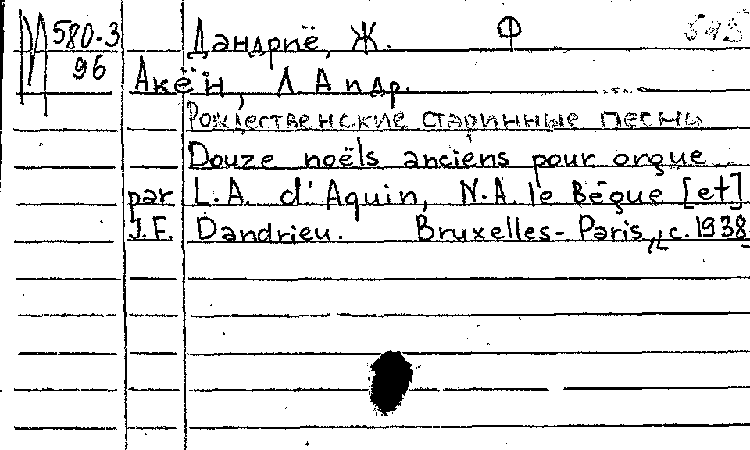 М 580-3 Дандриё, Ж. Ф
96 Акён, Л А и др.
Рождественские старинные песни
Douze noëls anciens pour orgue
par L.A. d'Aquin, N.A. le Bègue [et]
J.F. Dandrieu. Bruxelles - Paris, c. 1938